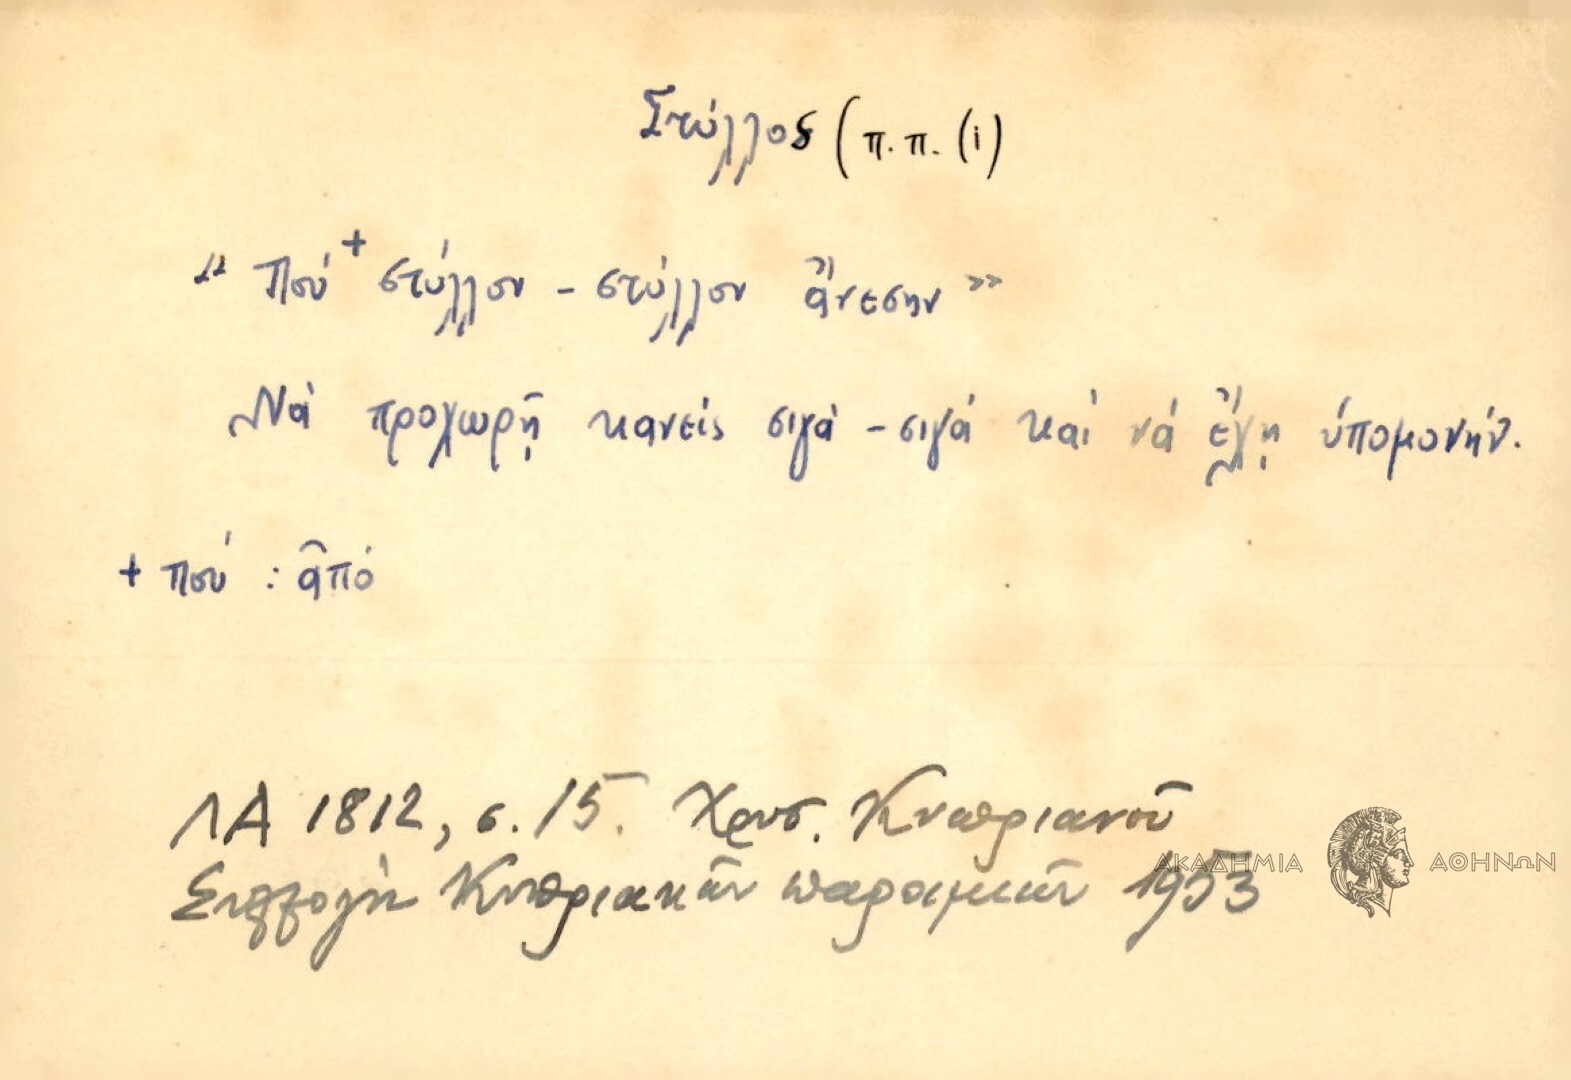 Στύλλος (π.π. (i)
"Πού + στύλλον - στύλλον ἄνεσην"
Νά προχωρῇ κανείς σιγά - σιγά καί νά ἔχῃ ὑπομονήν.
+ πού : ἀπό
ΛΑ 1812, σ. 15. Χρυσ. Κυπριανοῦ
Συλλογή Κυπριακῶν παροιμιῶν 1953
ΑΚΑΔΗΜΙΑ ΑΘΗΝΩΝ